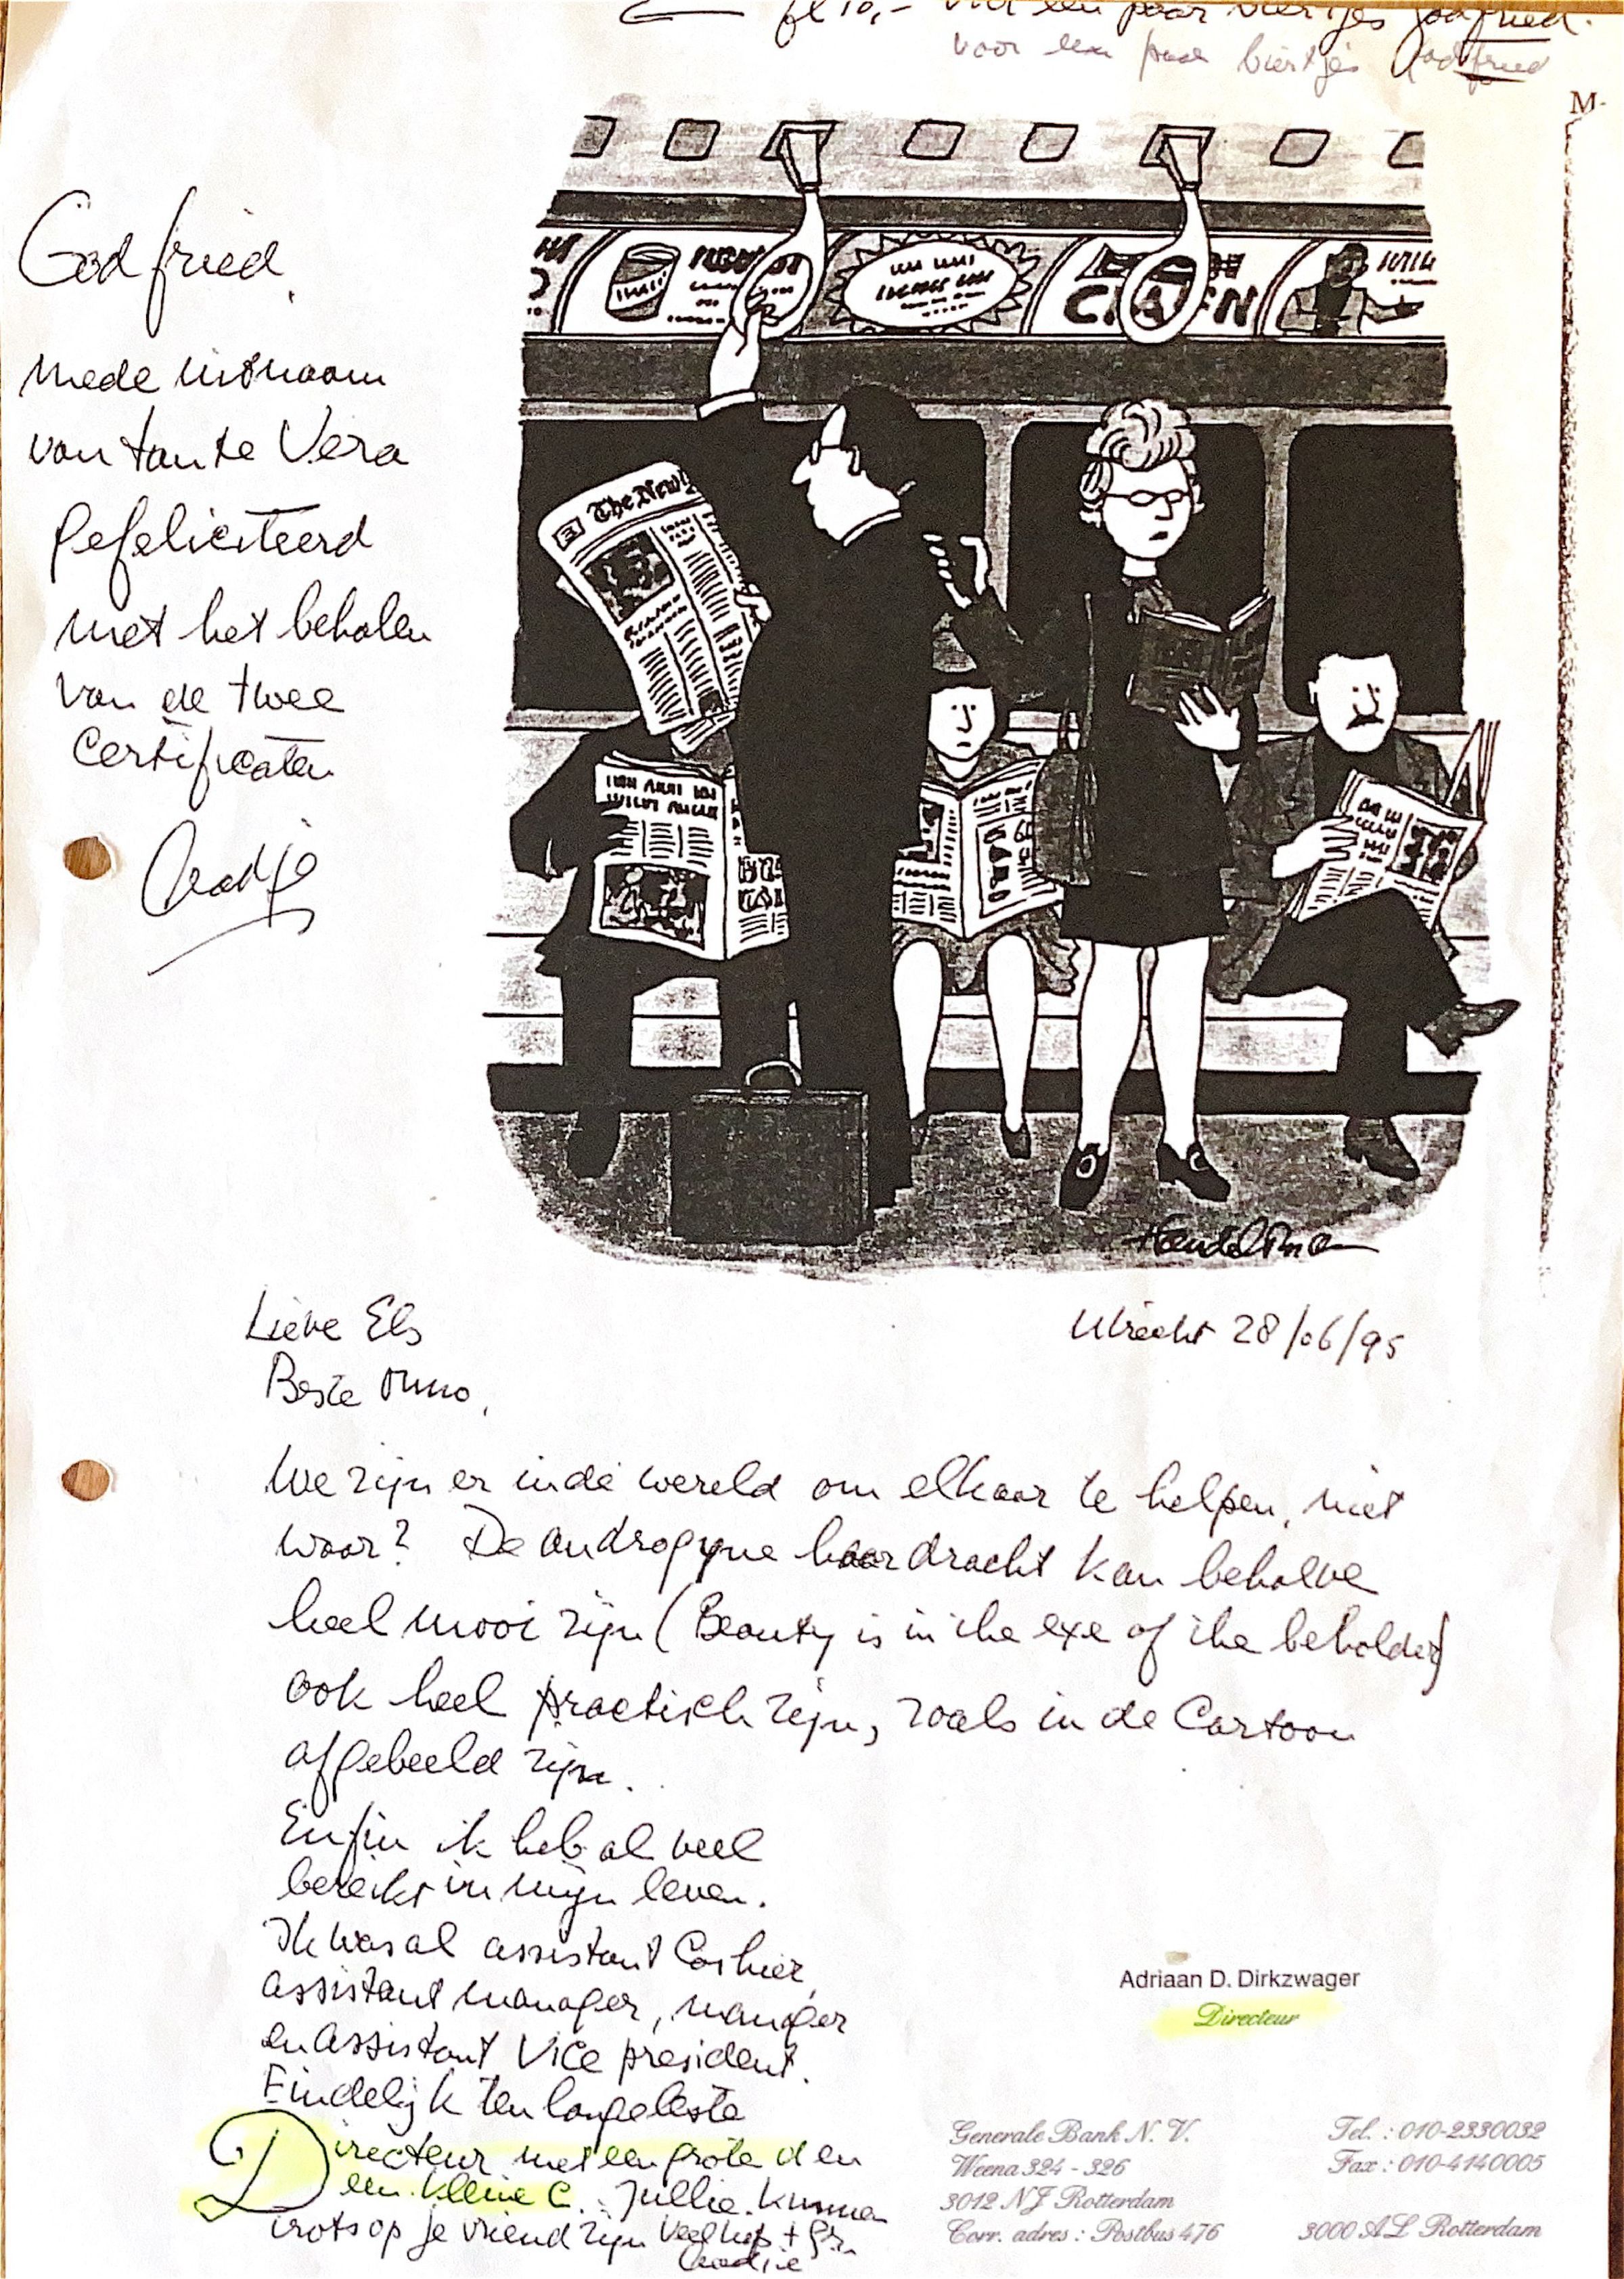 fl 10,- voor een paar biertjes Godfried.
voor een paar biertjes Godfried
M-
Godfried,
mede uit naam
van tante Vera
gefeliciteerd
met het behalen
van de twee
certificaten
Aadje
The New
3
Handelsman
Lieve Els
Utrecht 28/06/95
Beste Onno,
We zijn er in de wereld om elkaar te helpen, niet
waar? De androgyne haardracht kan behalve
heel mooi zijn (Beauty is in the eye of the beholder)
ook heel practisch zijn, zoals in de Cartoon
afgebeeld zijn.
Enfin ik heb al veel
bereikt in mijn leven.
Ik was al assistant Cashier,
assistant manager, manager
en assistant Vice president.
Eindelijk ten langeleste
Directeur met een grote d en
een kleine c. Jullie kunnen
trots op je vriend zijn Veel liefs + Gr.
Aadje
Adriaan D. Dirkzwager
Directeur
Generale Bank N.V.
Weena 324 - 326
3012 NJ Rotterdam
Corr. adres : Postbus 476
Tel. : 010-2330032
Fax : 010-4140005
3000 AL Rotterdam